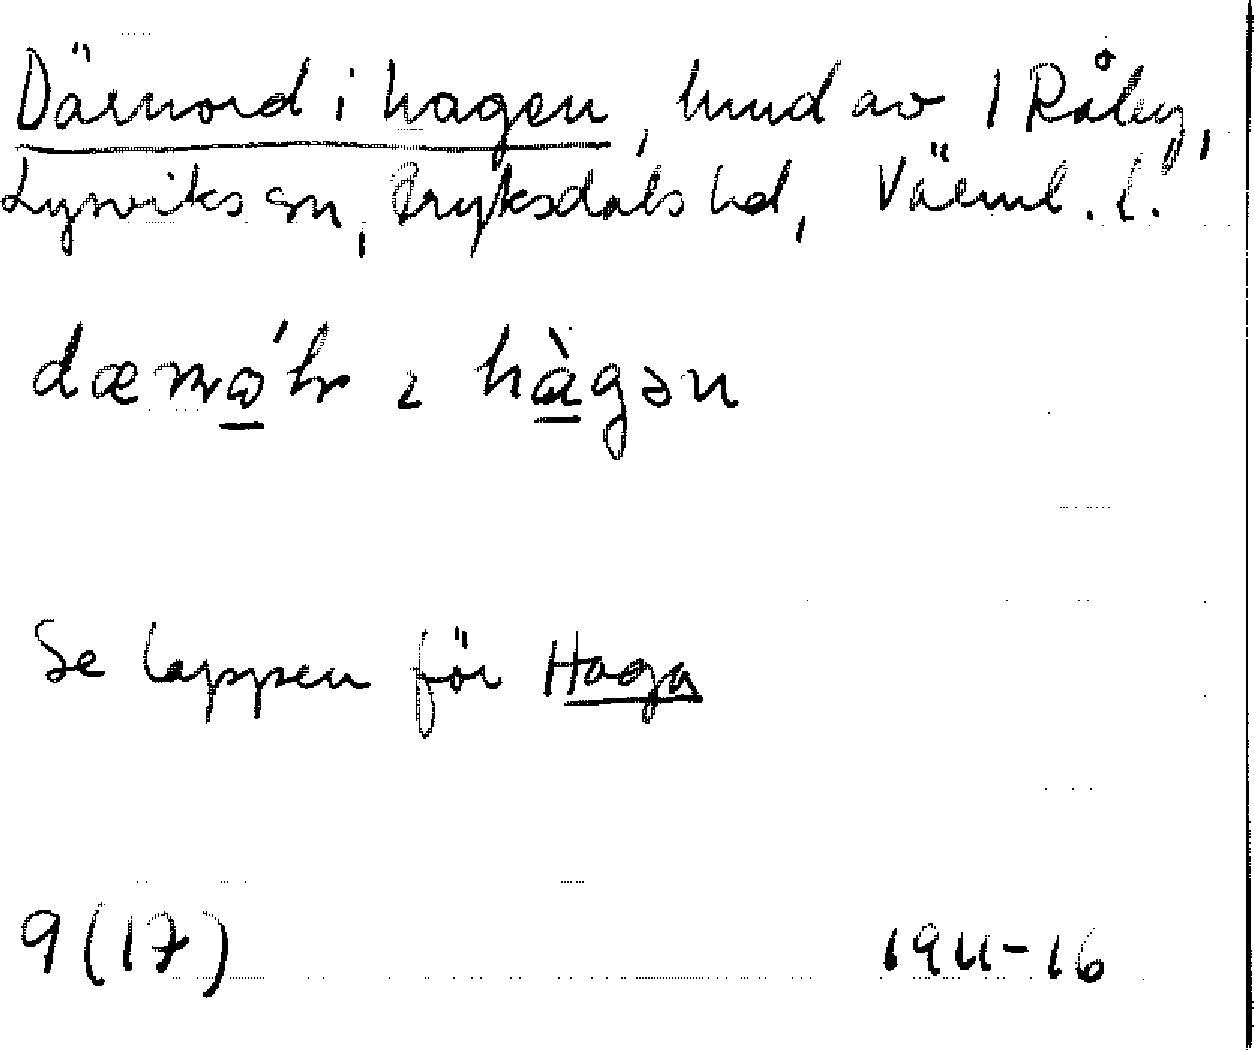 Därnord i hagen, hmd av 1 Råley,
Lysviks sn, Fryksdals hd, Värml. l.
i hàgən
Se lappen för Haga
9(17) 1911-16